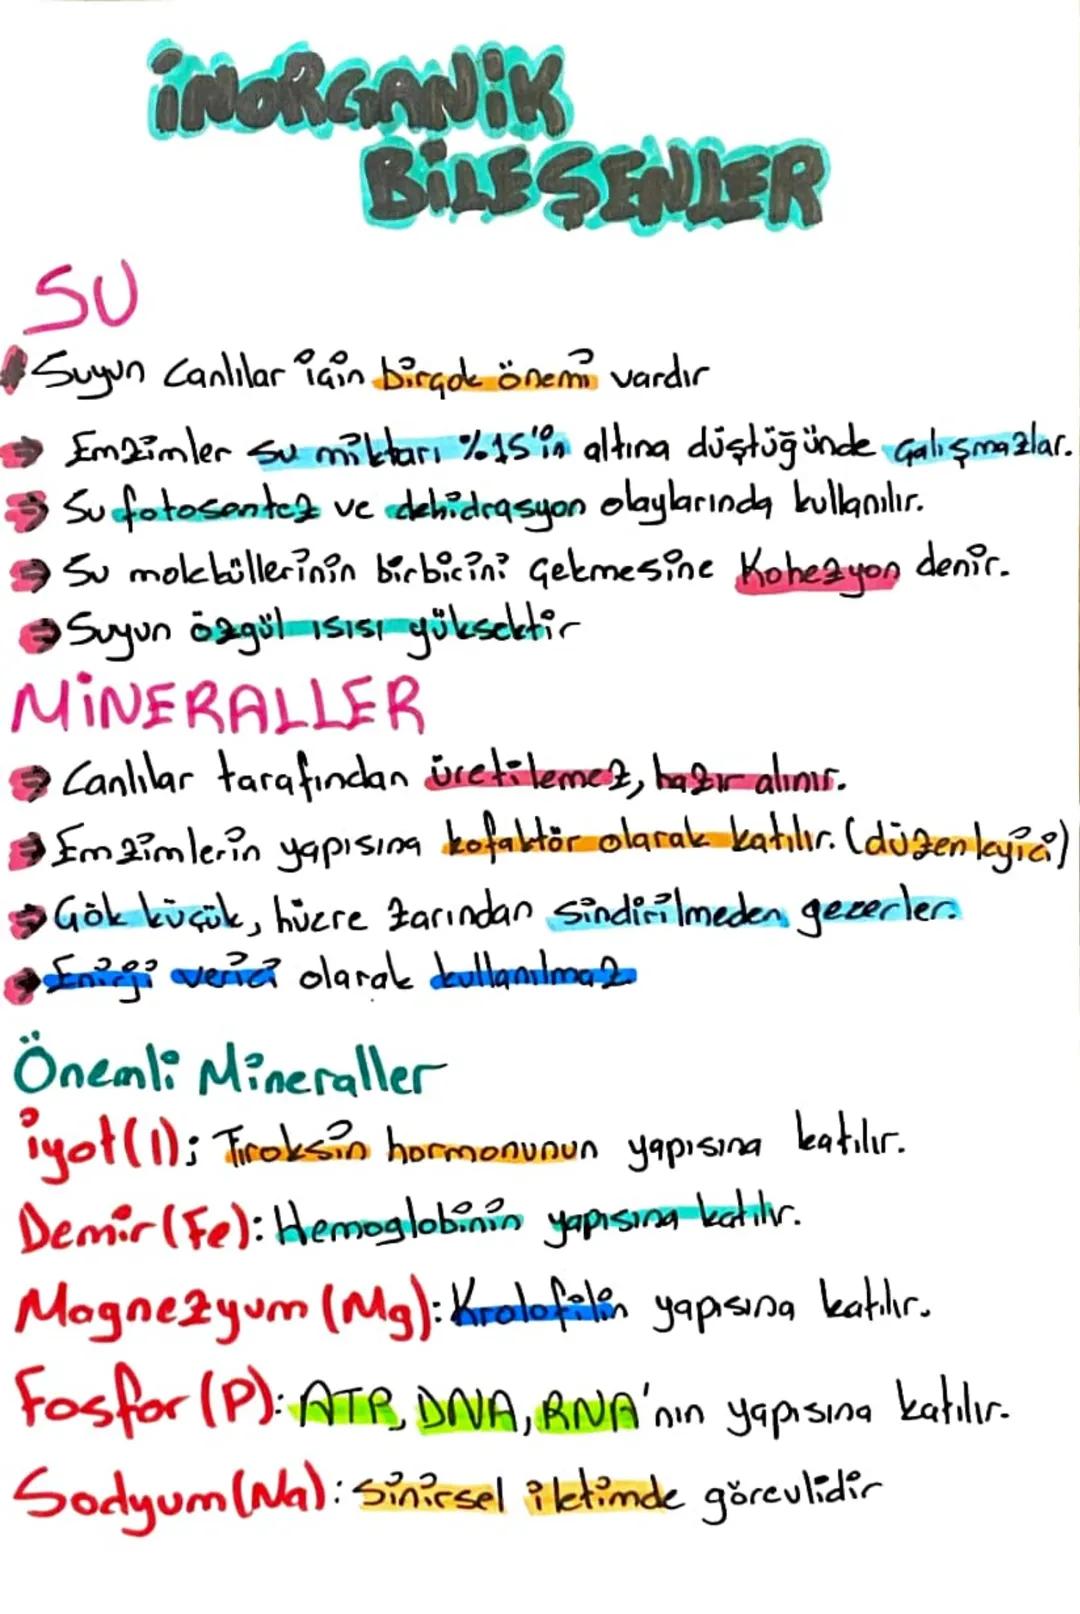 İNORGANİK
BİLEŞENLER
SU
Suyun Canlılar için birçok önemi vardır
Emzimler su miktarı %15'in altına düştüğünde çalışmazlar.
Su fotosentez ve dehidrasyon olaylarında kullanılır.
Su molküllerinin birbirini çekmesine Kohezyon denir.
Suyun özgül ısısı yüksektir
MİNERALLER
Canlılar tarafından üretilemez, hazır alınır.
Emzimlerin yapısına kofaktör olarak katılır. (düzenleyici)
Çok küçük, hücre zarından sindirilmeden geçerler.
Enerji verici olarak kullanılmaz
Önemli Mineraller
iyot(I): Tiroksin hormonunun yapısına katılır.
Demir(Fe): Hemoglobinin yapısına katılır.
Magnezyum (Mg): Krolofilin yapısına katılır.
Fosfor (P): ATP, DNA, RNA'nın yapısına katılır.
Sodyum(Na): Sinirsel iletimde görevlidir